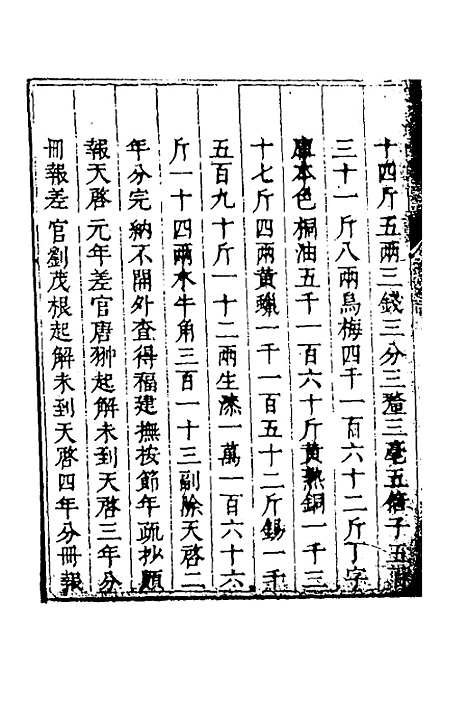 十四斤五兩三錢三分三釐三毫五信子五
三十一斤八兩烏梅四千一百六十二斤丁字
庫本色桐油五千一百六十斤黃熟銅一千三
十七斤四兩黃蠟一千一百五十二斤錫一千
五百九十斤一十二兩生漆一萬一百六十六
斤一十四兩水牛角三百一十三副除天啓二
年分完納不開外查得福建撫按節年疏抄題
報天啓元年差官唐翀起解未到天啓三年分
冊報差官劉茂根起解未到天啓四年分冊報